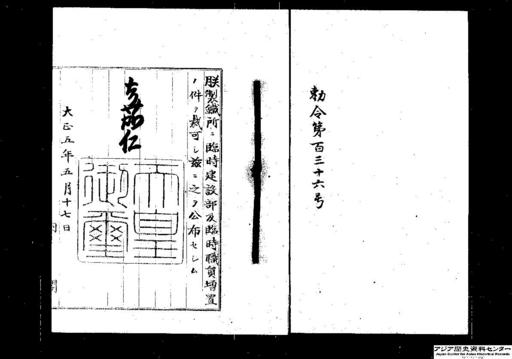 勅令第百三十六号
朕製鐵所ニ臨時建設部及臨時職員増置
ノ件ヲ裁可シ茲ニ之ヲ公布セシム
嘉仁
天皇御璽
大正五年五月十七日
アジア歴史資料センター
Japan Center for Asian Historical Records